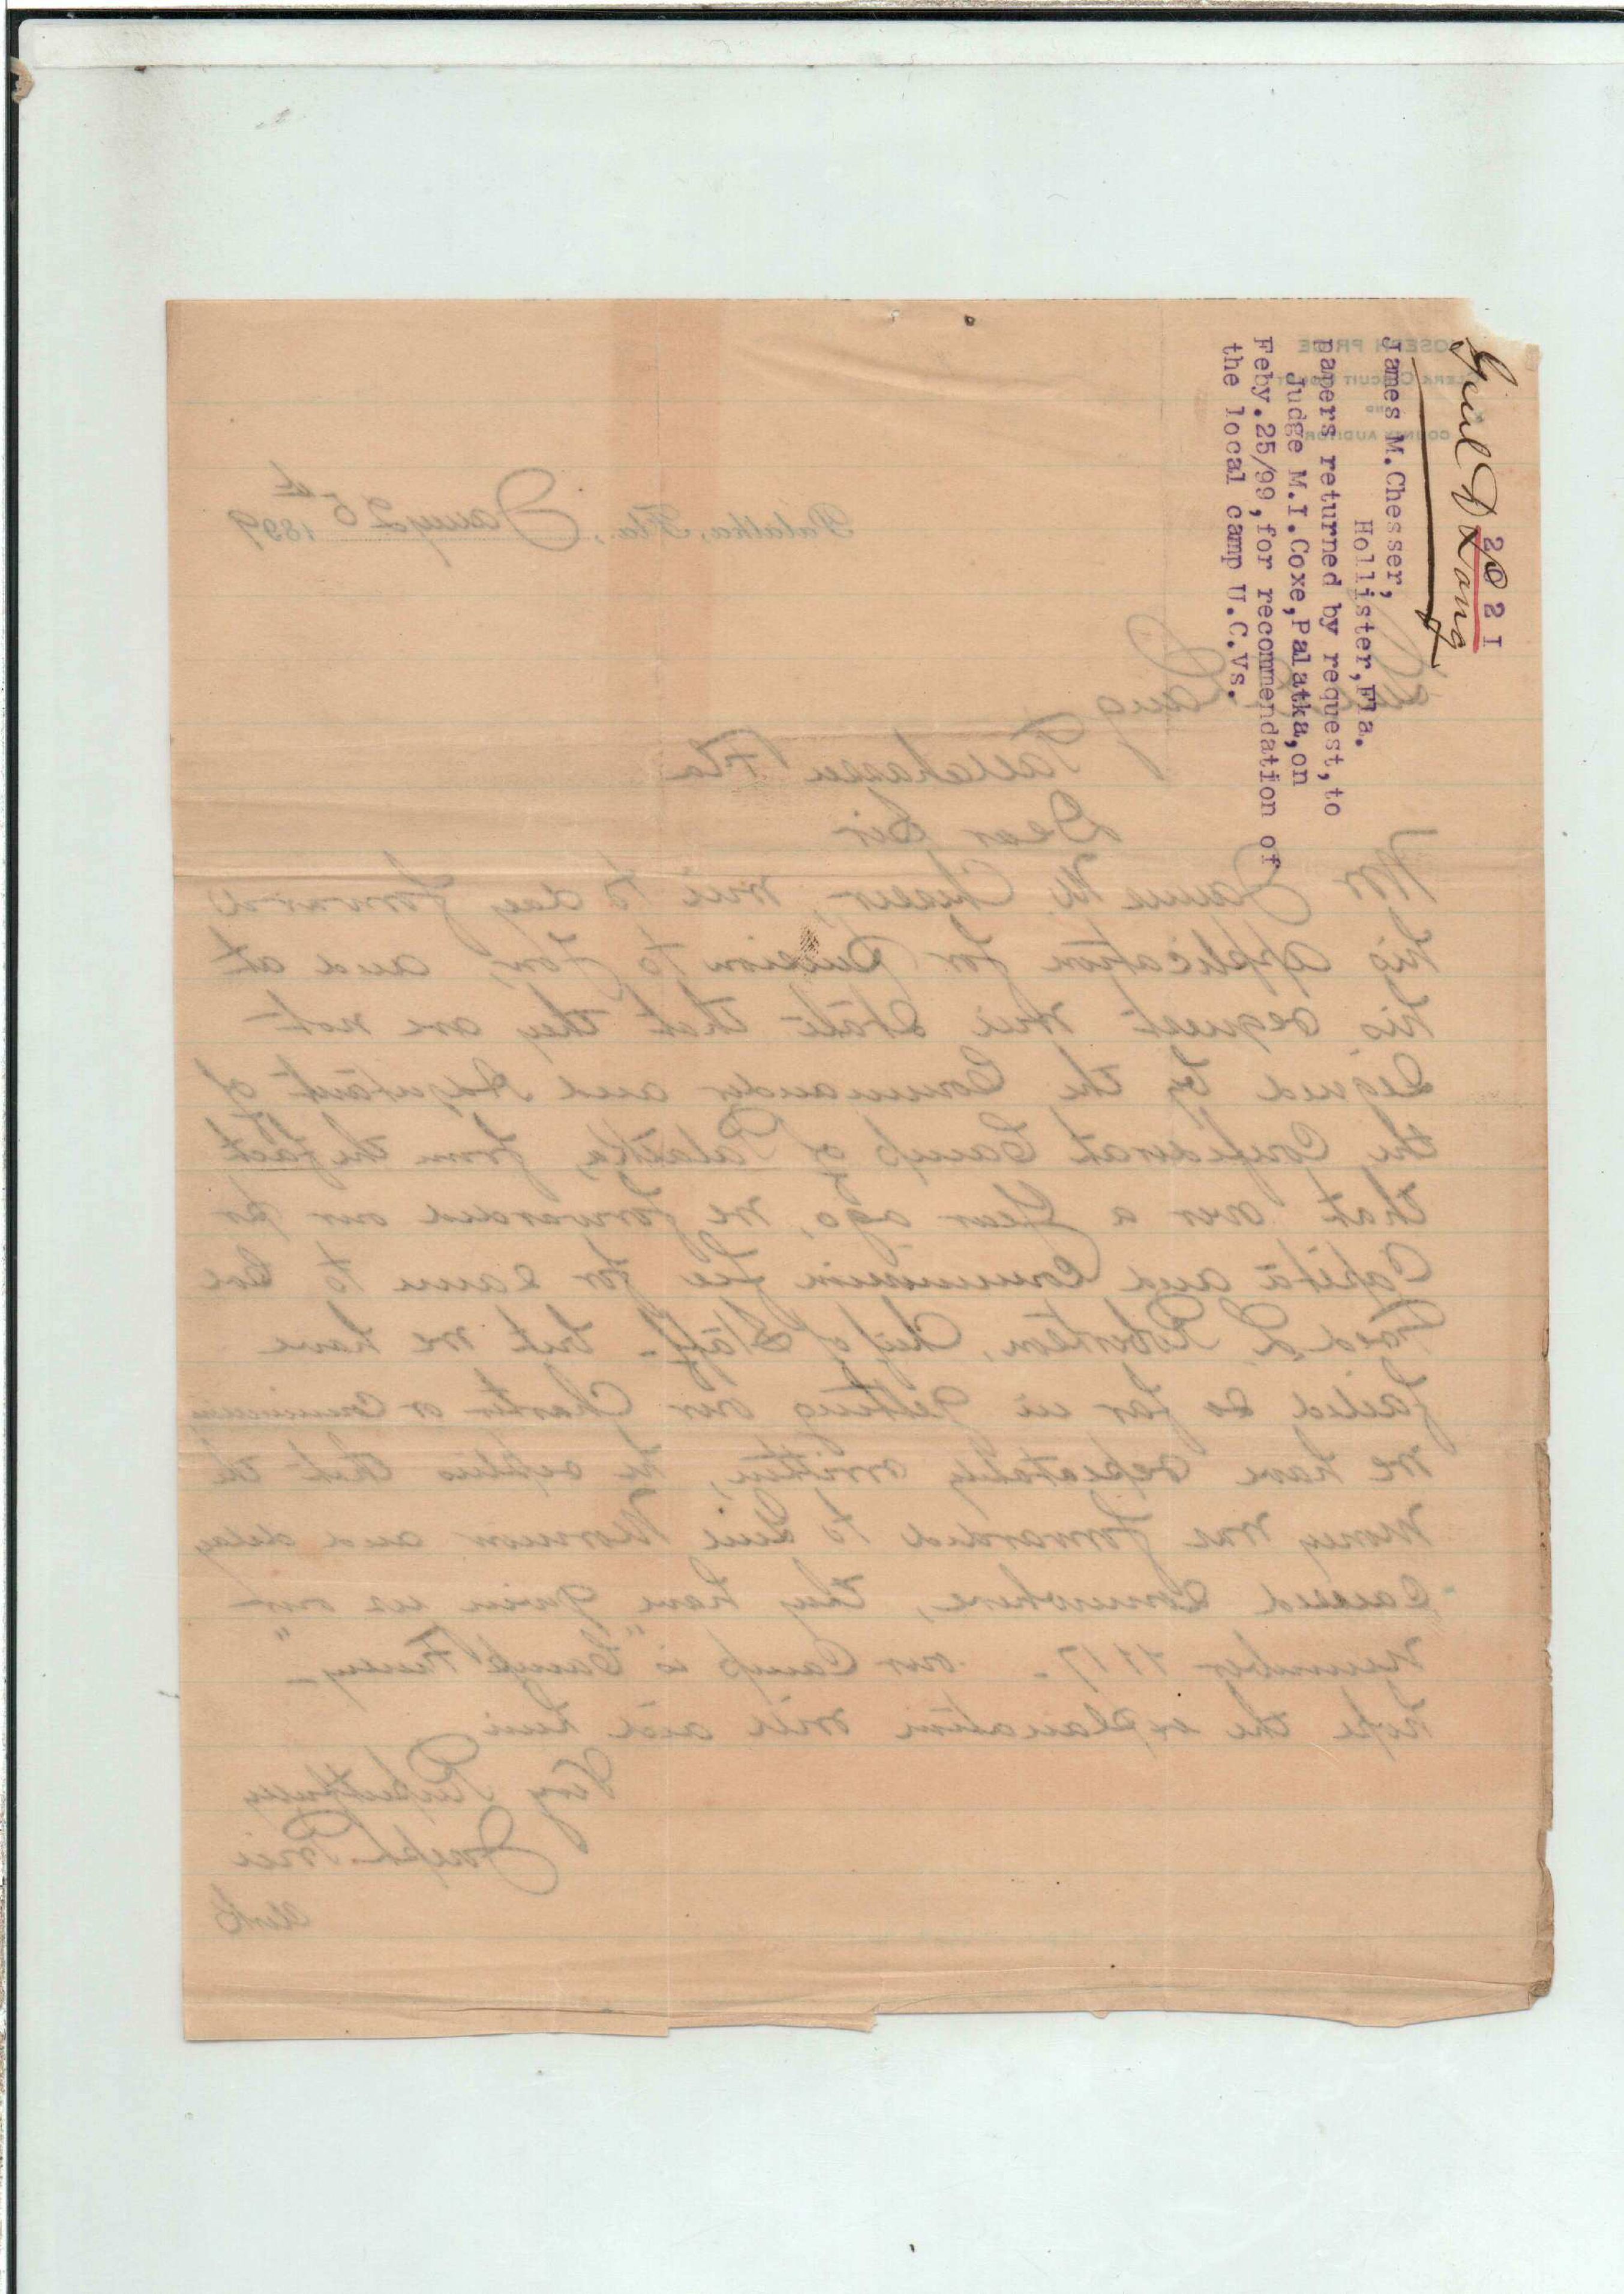 2021
Genl D Lang
James M.Chesser,
Hollister,Fla.
papers returned by request,to
Judge M.I.Coxe,Palatka,on
Feby.25/99,for recommendation of
the local camp U.C.Vs.
JOSEPH PRICE
CLERK CIRCUIT COURT
AND
COUNTY AUDITOR
Palatka, Fla., Jany 25th 1899
Lang
Tallahassee Fla
Dear Sir
Mr James M. Chesser, will to day forward
his application for Pension to you, and at
his request will state that they are not
signed by the Commander and Adjutant of
the Confederate Camp of Palatka, from the fact
that over a year ago, we forwarded our per
Capita and Commission fee for same to Col
Fred L. Robertson, Chief of Staff - but we have
failed so far in getting our Charter or Commission
we have repeatedly written, he replies that the
money was forwarded to Genl Moorman and delay
caused somewhere, they have given us our
number 1117 - our Camp is "Camp Finley" -
hope the explanation will aid him
Very Respectfully
Joseph Price
Clerk